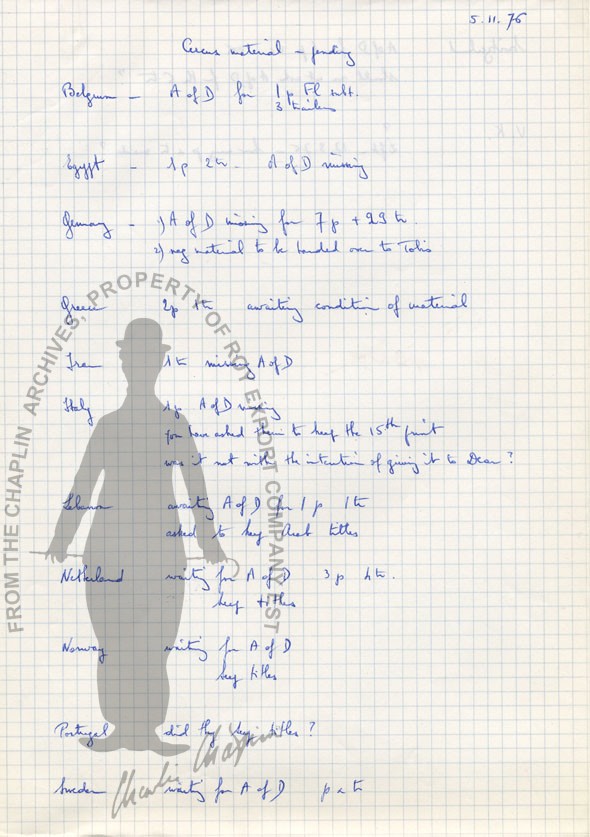 5.11.76
Circus material – pending
Belgium – A of D for 1 p Fl subt.
3 trailers
Egypt – 1p 2tr. A of D missing
Germany – 1) A of D missing for 7p + 29 tr.
2) neg material to be handed over to Tobis
Greece 2p 1tr awaiting condition of material
Iran 1tr missing A of D
Italy 1p A of D missing
you have asked them to keep the 15th print
was it not with the intention of giving it to Dear ?
Lebanon awaiting A of D for 1 p 1tr
asked to keep Arab titles
Netherland waiting for A of D 3p 4tr.
keep titles
Norway waiting for A of D
keep titles
Portugal did they keep titles ?
Sweden waiting for A of D p tr
FROM THE CHAPLIN ARCHIVES, PROPERTY OF ROY EXPORT COMPANY EST
Charlie Chaplin